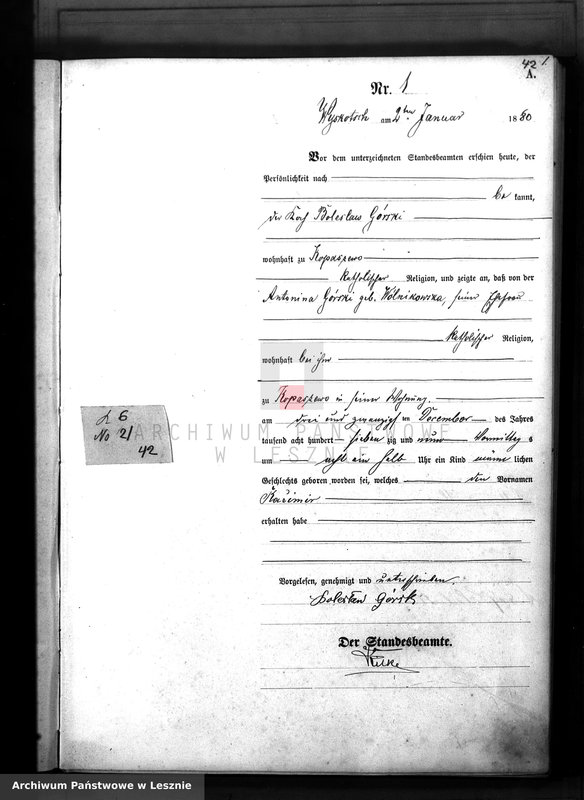 42 1.
A.
Nr. 1
Wyskotsch am 2ten Januar 1880
Vor dem unterzeichneten Standesbeamten erschien heute, der
Persönlichkeit nach
be kannt,
der Koch Boleslaus Górski
wohnhaft zu Kopaszewo
katholischer Religion, und zeigte an, daß von der
Antonina Górski geb. Wolnikowska, seiner Ehefrau
katholischer Religion,
wohnhaft bei ihm
zu Kopaszewo in seiner Wohnung,
am drei und zwanzigsten December des Jahres
tausend acht hundert sieben zig und neun Vormittag s
um acht ein halb Uhr ein Kind männ lichen
Geschlechts geboren worden sei, welches den Vornamen
Kazimir
erhalten habe
Vorgelesen, genehmigt und unterschrieben.
Boleslaw Górski
Der Standesbeamte.
L 6
No 2/
42
ARCHIWUM PAŃSTWOWE
W LESZNIE
Archiwum Państwowe w Lesznie